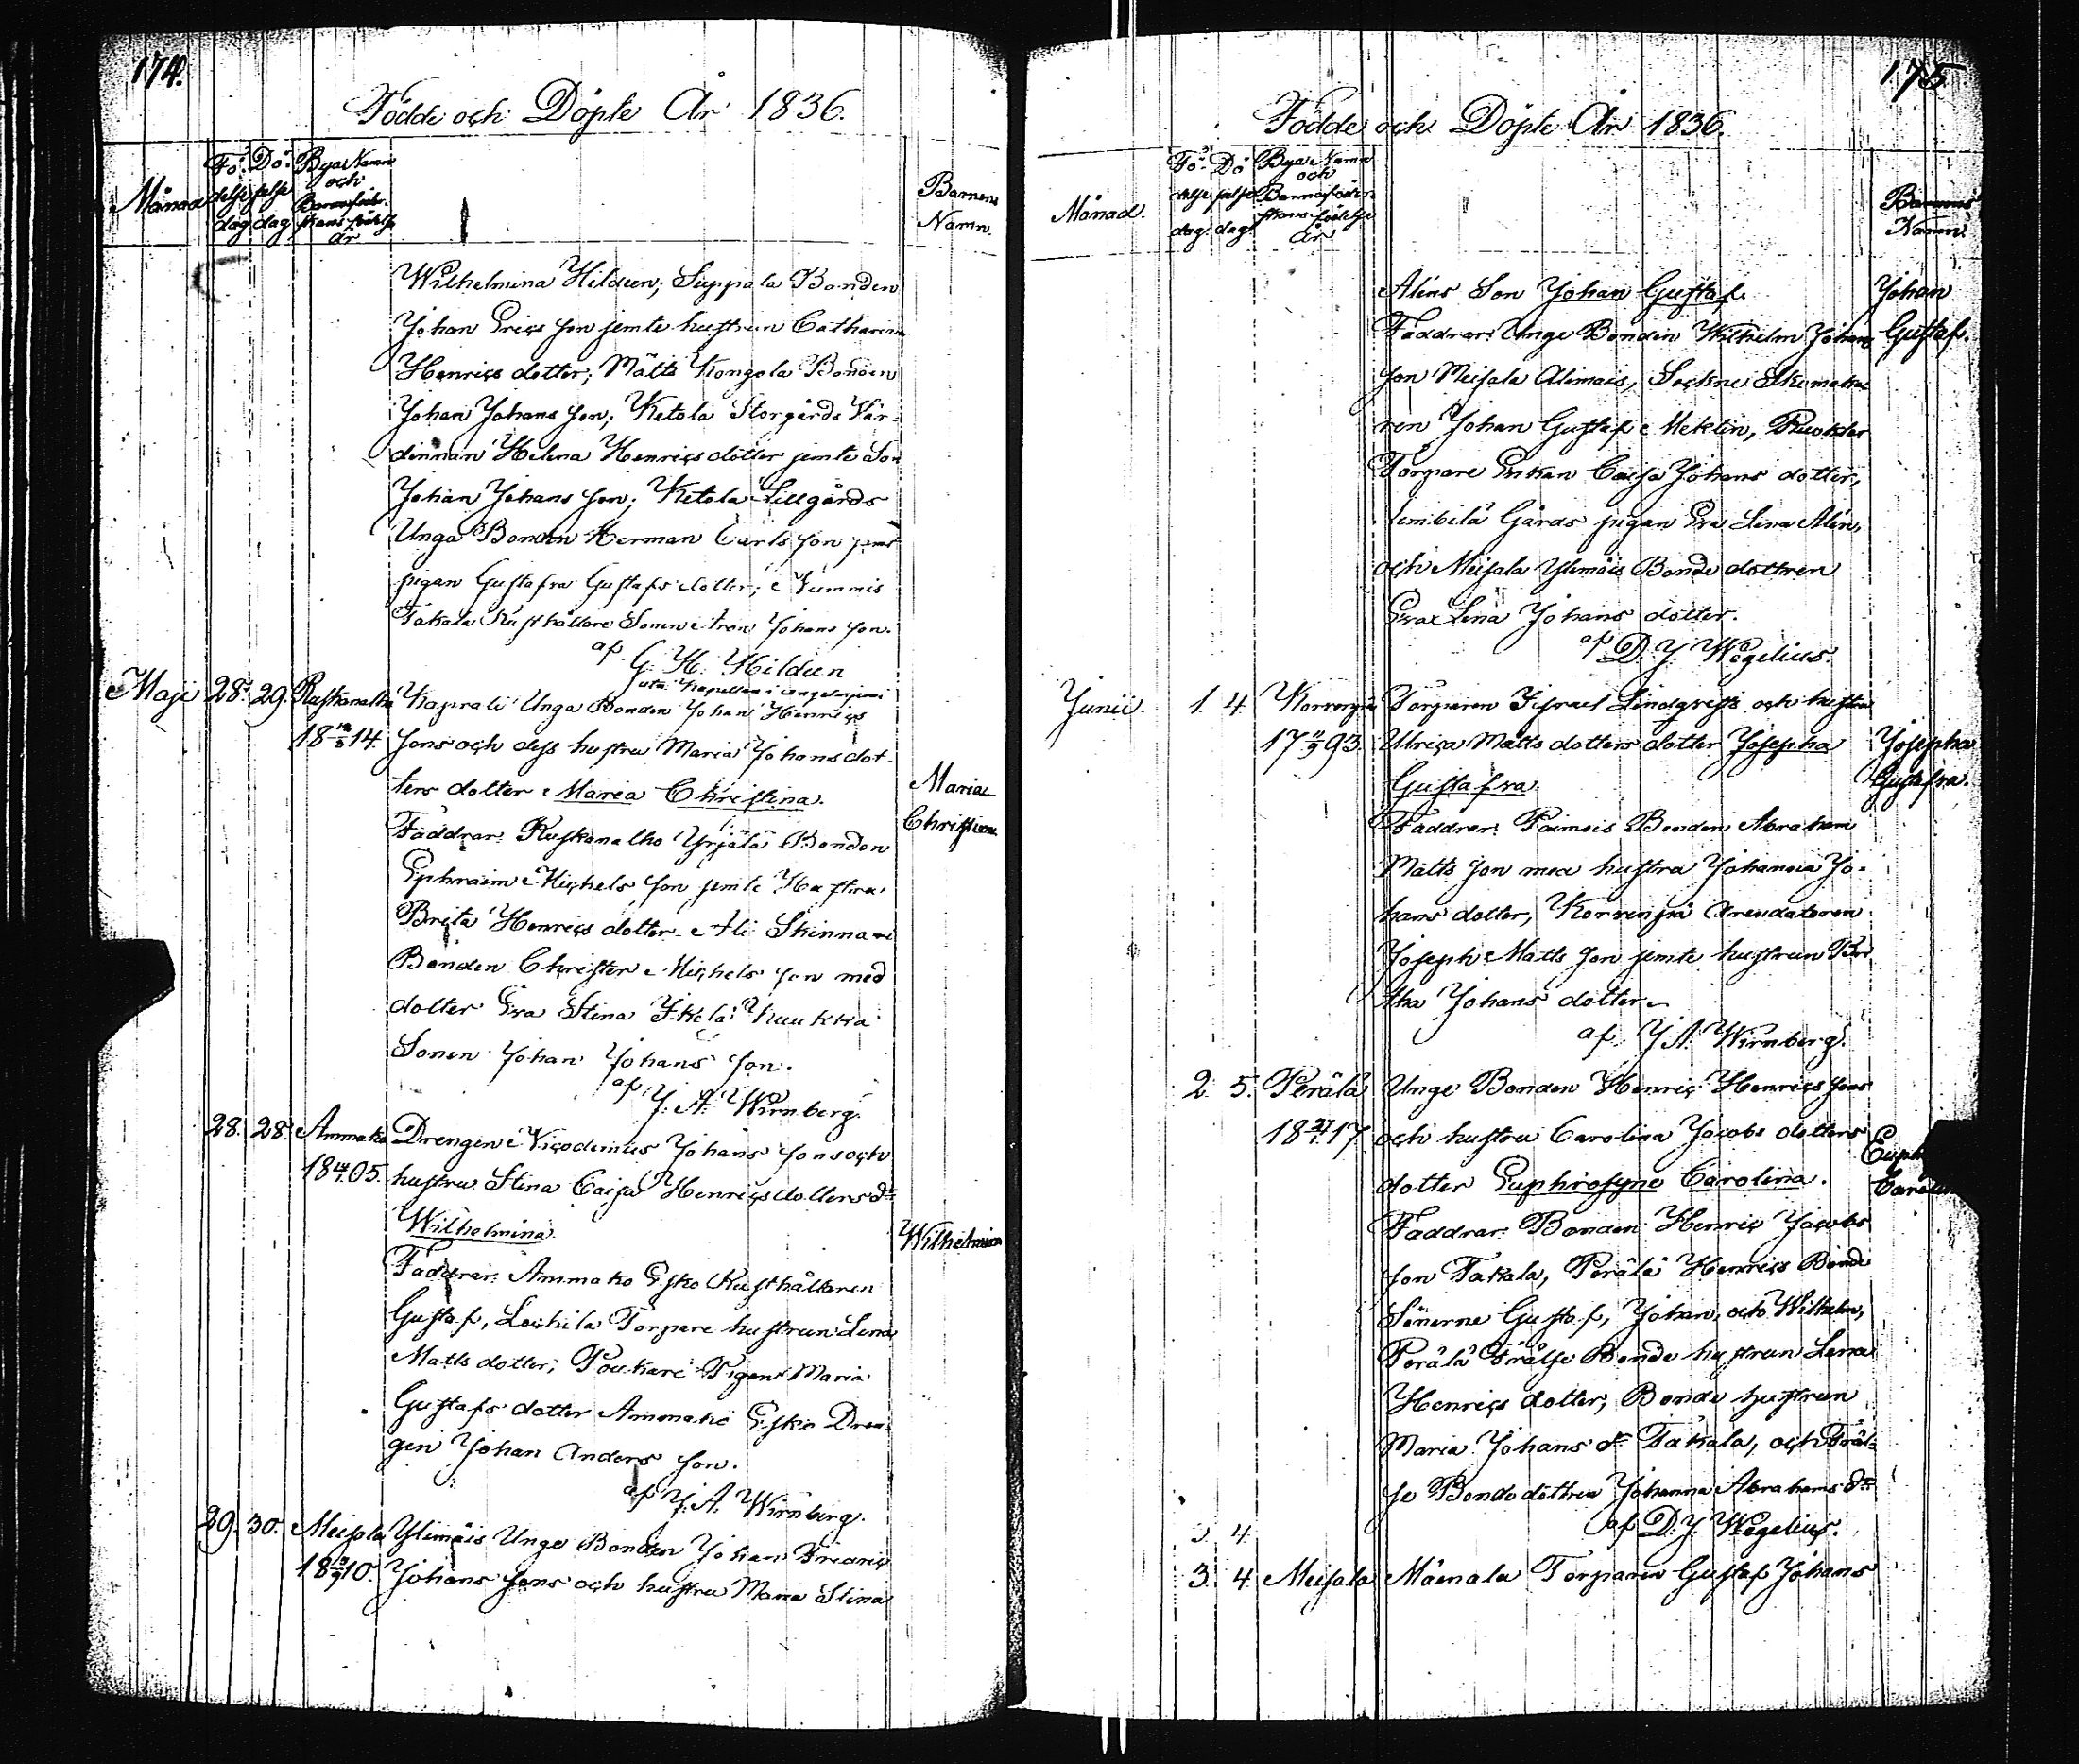 174.
Födde och Döpte År 1836.
Månad
Fö- delse dag
Dö- pelse dag
Bya Namn och Barnaföder- skans födelse år
Barnens Namn.
Wilhelmina Hildeen; Suppala Bonden
Johan Erics son jemte hustrun Catharina
Henrics dotter; Matts Kongola Bonden
Johan Johans son; Ketola Storgårds Vär-
dinnan Helena Henrics dotter jemte Son
Johan Johans son; Ketola Lillgårds
Unga Bonden Herman Carls son jemte
pigan Gustafva Gustafs dotter; Nummis
Takala Rusthållare Sonen Johans son.
af G. H. Hildeen
Maji 28. 29. Ruskonalho Kaprali Unga Bonden Johan Henrics
18 14. sons och dess hustru Maria Johans dot-
ters dotter Maria Christina. Maria
Christina.
Faddrar: Ruskonalho Yrjälä Bonden
Ephraim Michels son jemte Hustru
Brita Henrics dotter Ali Skinnari
Bonden Christer Michels son med
dotter Eva Stina Ikola Kuukka
Sonen Johan Johans son.
af J. A. Wirnberg.
28. 28. Ammako Drengen Nicodemus Johans sons och
18 05. hustru Stina Caisa Henrics dotters dr
Wilhelmina. Wilhelmina
Faddrar: Ammako Esko Rusthållaren
Gustaf, Lochila Torpare hustrun Lena
Matts dotter; Poukari Pigan Maria
Gustafs dotter Ammako Esko Dren-
gen Johan Anders son.
af J. A. Wirnberg.
29. 30. Meisala Ylimäis Unge Bonden Johan Fredric
18 10. Johans sons och hustru Maria Stina
175
Födde och Döpte År 1836.
Månad.
Fö- delse dag.
Dö- pelse dag.
Bya Namn och Barnaföder- skans födelse år
Barnens Namn.
Aléns Son Johan Gustaf. Johan
Faddrar: Unge Bonden Wilhelm Johans Gustaf.
son Meisala Alimais, Sockne Skomaka-
ren Johan Gustaf Meklin,
Torpare Enkan Caisa Johans dotter,
Lembilä Gårds pigan Eva Lena Alén,
och Meisala Ylimäis Bonde dottren
Eva Lena Johans dotter.
af D. J. Wegelius.
Junii. 1. 4. Korvenpä Torparen Israel Lindqvists och hustru
17 93. Ulrica Matts dotters dotter Josepha Josepha
Gustafva. Gustafva.
Faddrar: Paimois Bonden Abraham
Matts son med hustru Johanna Jo-
hans dotter, Korvenpä Arendatoren
Joseph Matts son jemte hustrun Bri
tha Johans dotter.
af J A. Wirnberg.
2. 5. Perälä Unge Bonden Henric Henrics sons
18 17 och hustru Carolina Jacobs dotters
dotter Euphrosyne Carolina. Euph
Carol
Faddrar: Bonden Henric Jacobs
son Takala, Perälä Henrics Bonde
Sönerne Gustaf, Johan, och Wilhelm,
Perälä Frälse Bonde hustrun Lena
Henrics dotter; Bonde hustrun
Maria Johans dr Takala, och Fräl-
se Bonde dottren Johanna Abrahams dr
af D. J. Wegelius.
3. 4.
3. 4. Meisala Mäenala Torparen Gustaf Johans